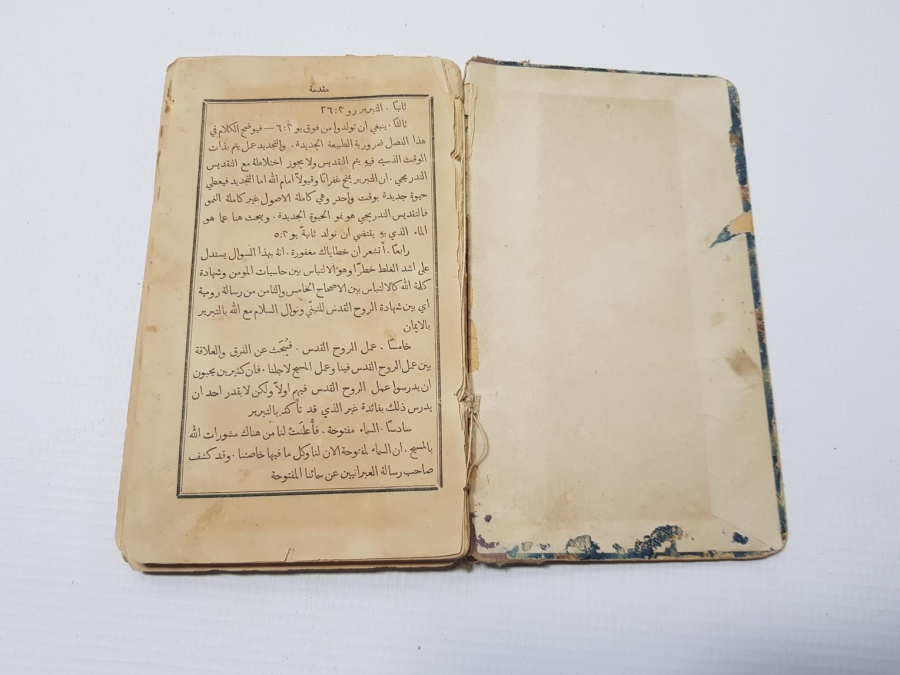 مقدمة
ثانيًا . التبرير رو ٢٦:٣
ثالثًا . ينبغي ان تولدوا من فوق يو ٦:٣ — فيوضح الكلام في
هذا الفصل ضرورية الطبيعة الجديدة . والتجديد عمل يتم بذات
الوقت الذي فيهِ يتم التقديس ولا يجوز اختلاطهُ مع التقديس
التدريجي . ان التبرير يمنح غفرانًا وقبولًا امام الله اما التجديد فيعطي
حيوة جديدة بوقت واحد وهي كاملة الاصول غير كاملة النمو
فالتقديس التدريجي هو نمو الحيوة الجديدة . ويبحث هنا عما هو
الماء الذي بهِ يقتضي ان نولد ثانيةً يو ٥:٣
رابعًا . أتشعر ان خطاياك مغفورة . انهُ بهذا السوال يستدل
على اشد الغلط خطرًا وهو الالتباس بين حاسيات المومن وشهادة
كلمة الله كالالتباس بين الاصحاح الخامس والثامن من رسالة رومية
اي بين شهادة الروح القدس للتبنّي ونوال السلام مع الله بالتبرير
بالايمان
خامسًا . عمل الروح القدس . فيُبحَث عن الفرق والعلاقة
بين عمل الروح القدس فينا وعمل المسيح لاجلنا . فان كثيرين يحبون
ان يدرسوا عمل الروح القدس فيهم اولًا ولكن لا يقدر احد ان
يدرس ذلك بفائدة غير الذي قد تأكد بالتبرير
سادسًا . السماء مفتوحة . فأُعلنَت لنا من هناك مشورات الله
بالمسيح . ان السماء لمفتوحة الان لنا وكل ما فيها خاصتنا . وقد كشف
صاحب رسالة العبرانيين عن سمائنا المفتوحة